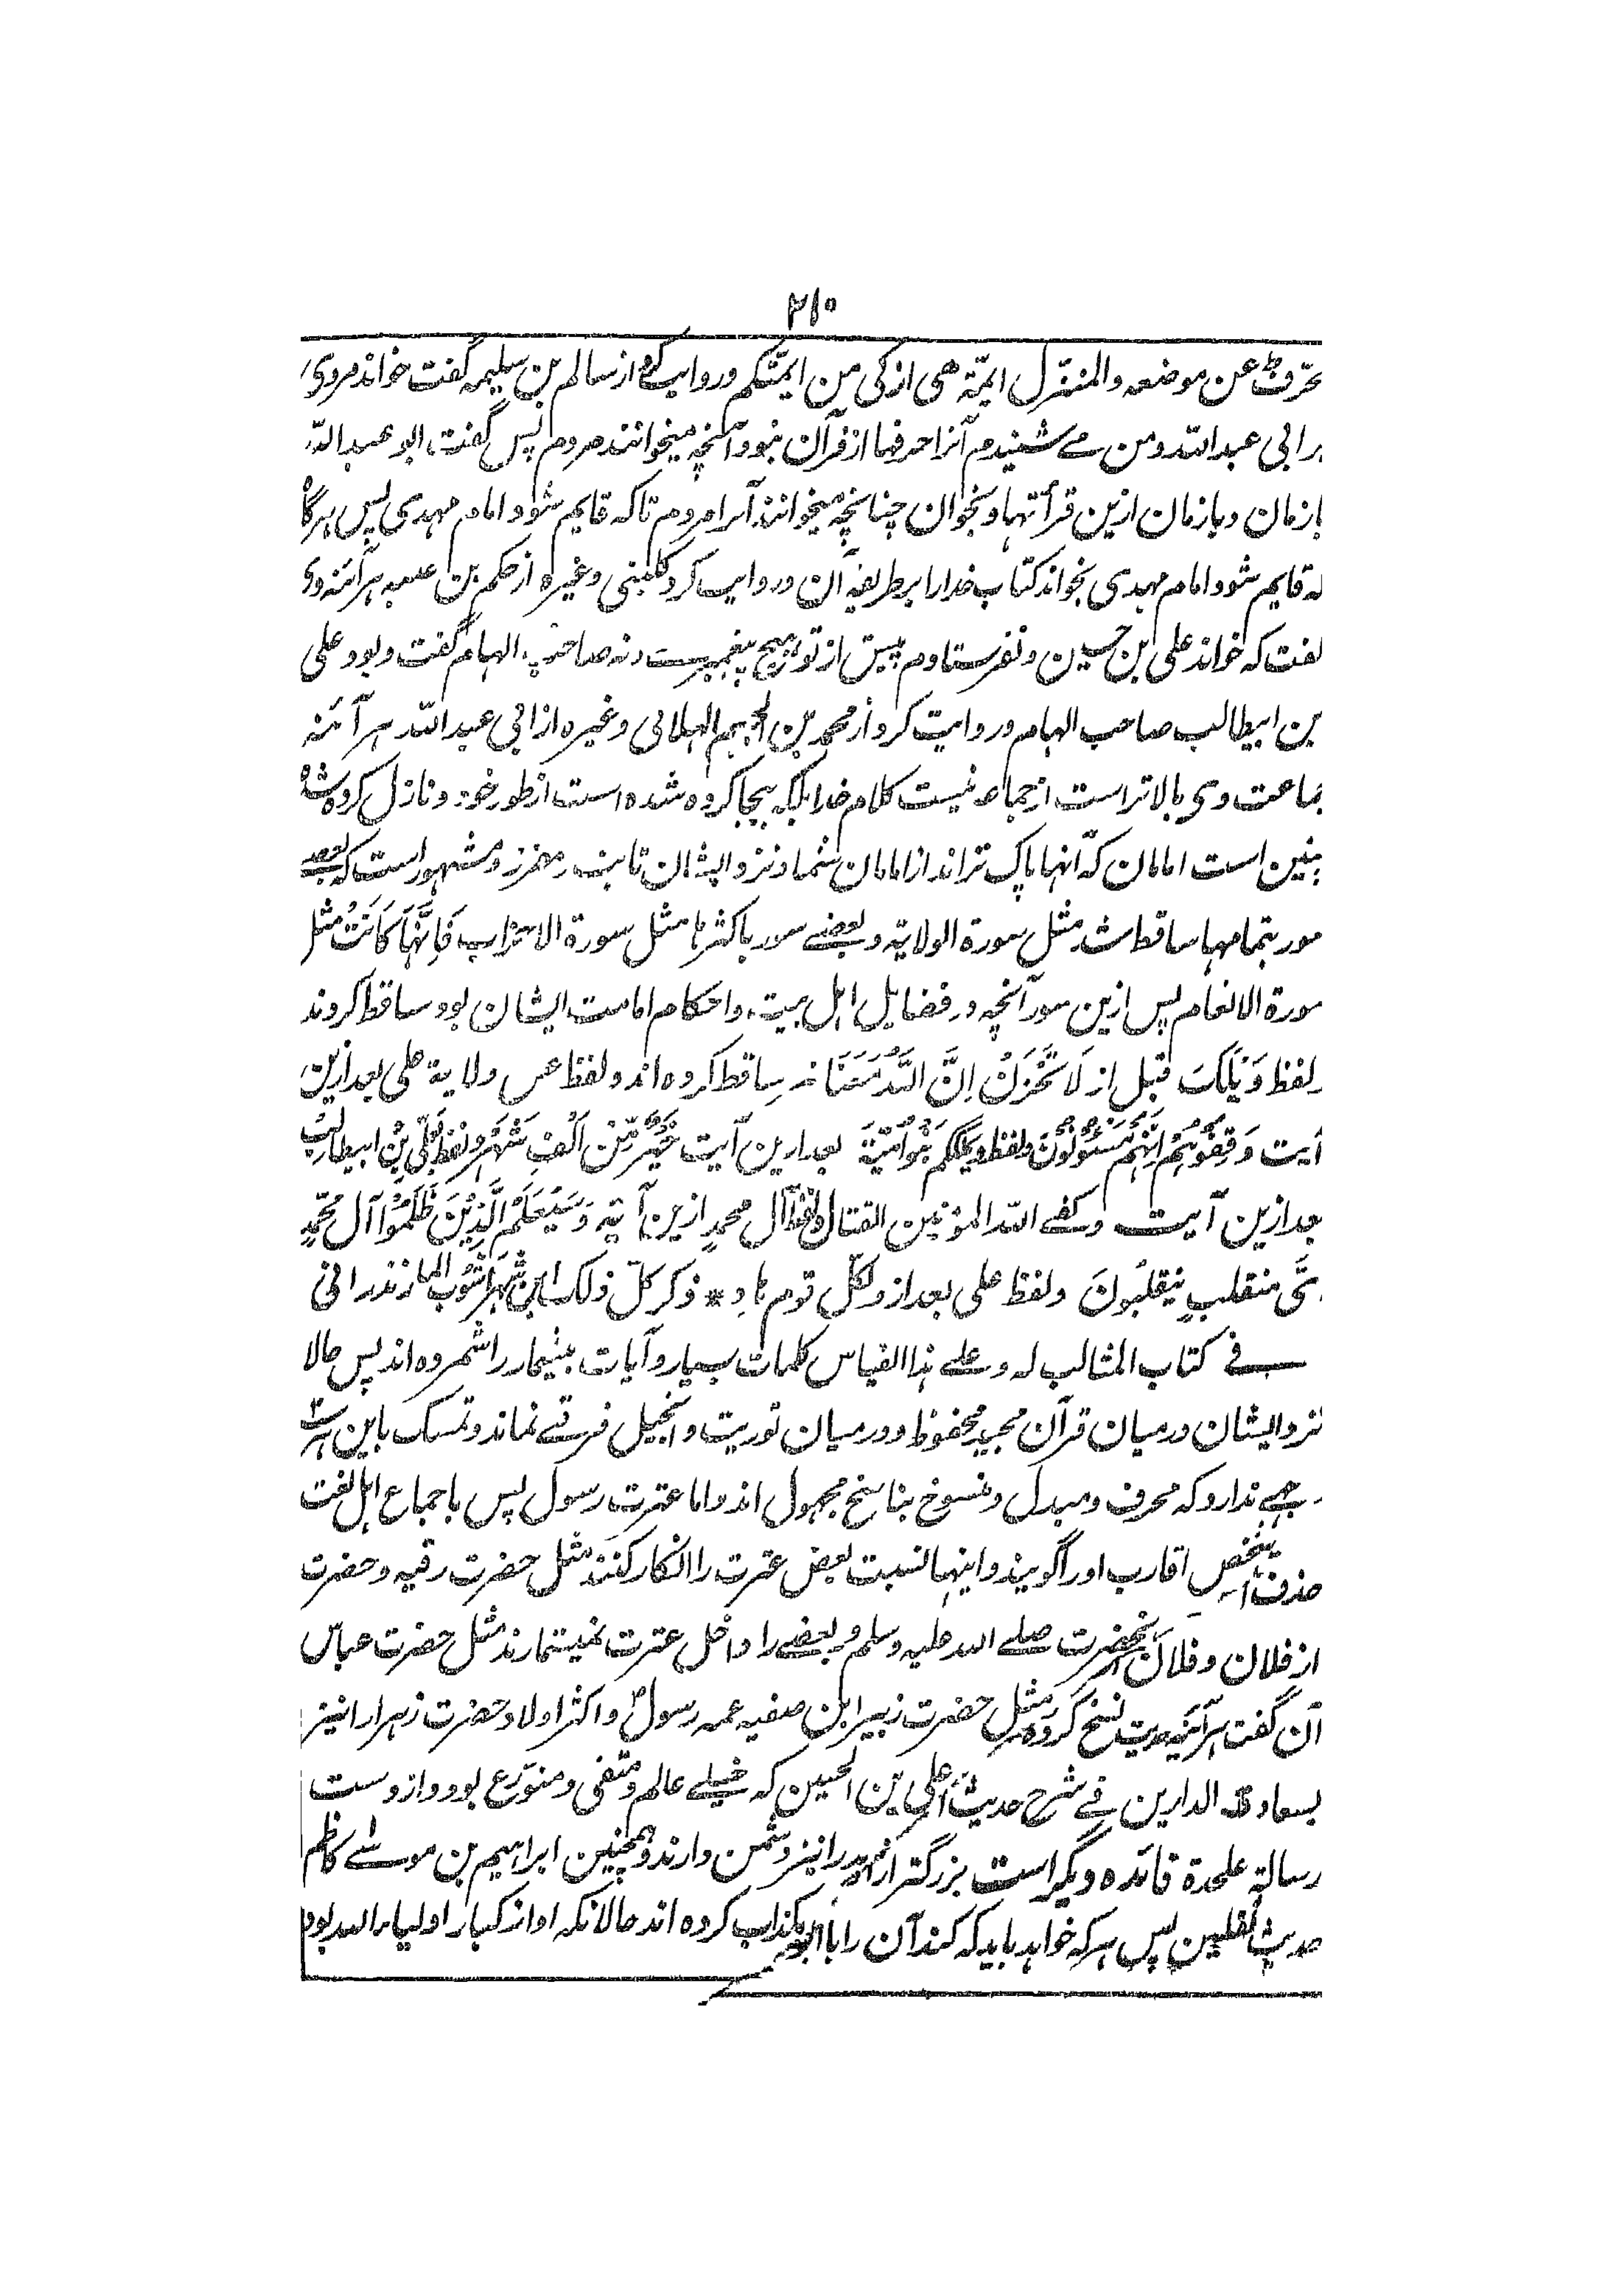 ۲۱۰
محرّف عن موضعه والمنزل ائمّة هی ازکی من ایمتکم وروایت کرده از سالم بن سلیمه گفت خواند مردی
بر ابی عبداللّه ومن مے شنیدم آنرا حرفها از قرآن نبود آنچه میخوانند مردم پس گفت ابو عبداللّه
بازمان وبازمان ازین قرأتها و بخوان چنانچه میخوانند آنرا مردم تاکه قایم شود امام مهدی پس هرگاه
که قایم شود امام مهدی بخواند کتاب خدا را بر طریقهٔ آن وروایت کرد کلینی وغیره از حکم بن عتیبه هرآئنه وی
گفت که خواند علی بن حسین ونفرستادم پیش از تو هیچ پیغمبرے ونه صاحب الهام گفت وبود علی
بن ابیطالب صاحب الهام وروایت کرد از محمد بن الجهیم الهلالی وغیره از ابی عبداللّه هر آئنه
جماعت وی بالاتر است از جماعه نیست کلام خدا بلکه بیجا کرده شده است از طور خود ونازل کرده شده
چنین است امامان که آنها پاک تر اند از امامان شما ونزد ایشان ثابت ومقرر ومشهور است که بعضے
سور بتمامها ساقط شد مثل سورة الولایة وبعضے سور باکثرها مثل سورة الاحزاب فَاِنَّهَا كَانَتْ مثل
سورة الانعام پس ازین سور آنچه در فضایل اهل بیت واحکام امامت ایشان بود ساقط کردند
ولفظ وَیْلَكَ قبل از لَا تَحْزَنْ اِنَّ اللّٰهَ مَعَنَا نیز ساقط کرده اند ولفظ عن ولایة علی بعد ازین
آیت وَقِفُوْهُمْ اِنَّهُمْ مَسْئُوْلُوْنَ ولفظ ویملکهم بَنُوْ اُمَیَّةَ بعد ازین آیت خَیْرٌ مِّنْ اَلْفِ شَهْرٍ ولفظ بِعَلِیِّ بْنِ ابیطالبٍ
بعد ازین آیت وکفے اللّه المؤمنین القتال ولفظ آل محمد ازین آیه وَسَیَعْلَمُ الَّذِیْنَ ظَلَمُوْا آل مُحَمَّدٍ
اَیَّ منقلبٍ یَنْقَلِبُوْنَ ولفظ علی بعد از ولکلّ قوم هادٍ * ذکر کلّ ذلك ابن شَهْرَ اٰشُوْب المازندرانی
فے کتاب المثالب له وعلے هذا القیاس کلمات بسیار وآیات بیشمار را شمرده اند پس حالا
نزد ایشان درمیان قرآن مجید محفوظ ودرمیان توریت وانجیل فرقے نماند وتمسک باین هر سه
وجهے ندارد که محرف ومبدل ومنسوخ بناسخ مجهول اند واما عترت رسول پس باجماع اهل لغت
یشخص اقارب او را گویند واینها نسبت بعض عترت را انکار کنند مثل حضرت رقیه وحضرت
از فلان وفلان آنحضرت صلے اللہ علیه وسلم وبعضے را داخل عترت نمیشمارند مثل حضرت عباس
آن گفت هرآئنه حدیث نسخ کرده مثل حضرت زبیر ابن صفیه عمه رسول واکثر اولاد حضرت زهرا را نیز
بسعادة الدارین فے شرح حدیث علی بن الحسین که خیلے عالم ومتقی ومتورّع بود واز دست
رسالة علحدة فائده دیگر است بزرگتر از را نیز دشمن دارند وهمچنین ابراهیم بن موسے کاظم
حدیث ثقلین پس هر که خواهد باید که کند آن را با بکذاب کرده اند حالانکه او از کبار اولیاء اللہ بود